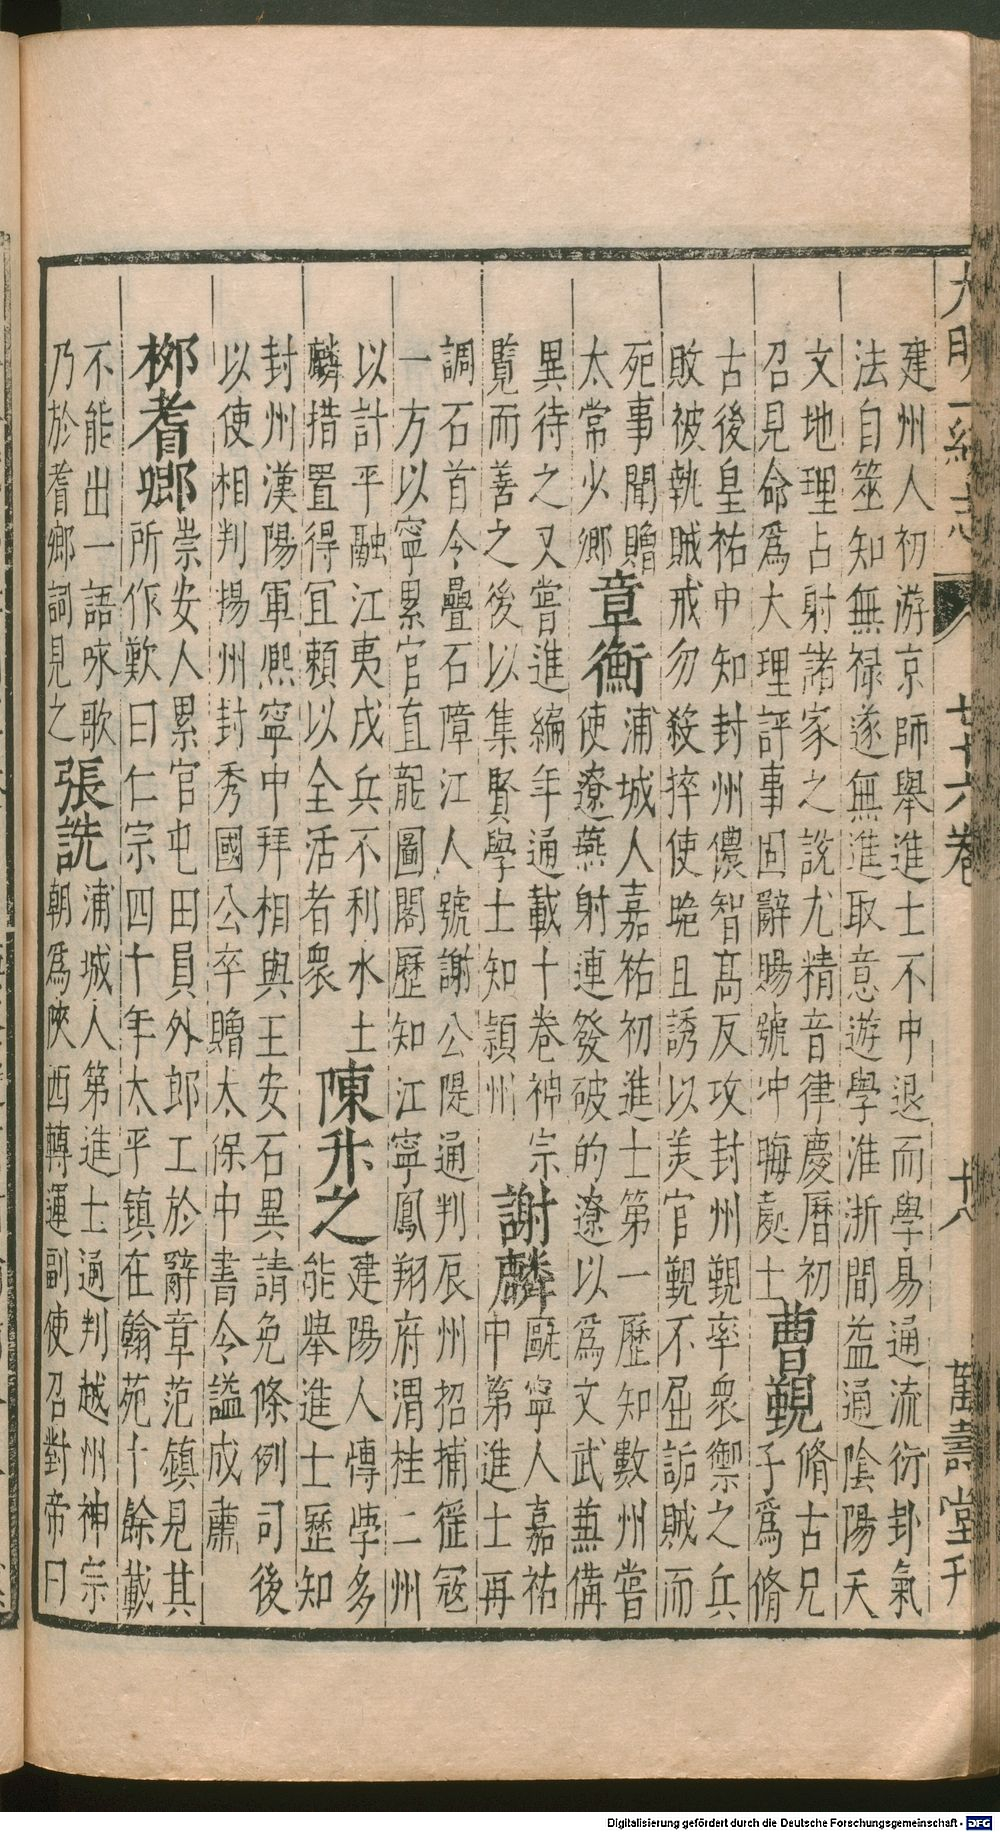 大明一統志　七十六卷　十八　萬壽堂刊
建州人初游京師舉進士不中退而學易通流衍卦氣
法自筮知無禄遂無進取意遊學淮浙間益通陰陽天
文地理占射諸家之說尤精音律慶曆初
召見命爲大理評事固辭賜號冲晦處士
曹覲
脩古兄
子爲脩
古後皇祐中知封州儂智高反攻封州覲率衆禦之兵
敗被執賊戒勿殺捽使跪且誘以美官覲不屈詬賊而
死事聞贈
太常少卿
章衡
浦城人嘉祐初進士第一歷知數州嘗
使遼燕射連發破的遼以爲文武兼備
異待之又嘗進編年通載十卷神宗
覽而善之後以集賢學士知潁州
謝麟
甌寧人嘉祐
中第進士再
調石首令疊石障江人號謝公隄通判辰州招捕徭寇
一方以寧累官直龍圖閣歷知江寧鳳翔府渭桂二州
以計平融江夷戍兵不利水土
麟措置得宜賴以全活者衆
陳升之
建陽人慱學多
能舉進士歷知
封州漢陽軍熈寧中拜相與王安石異請免條例司後
以使相判揚州封秀國公卒贈太保中書令謚成肅
栁耆卿
崇安人累官屯田員外郎工於辭章范鎮見其
所作歎曰仁宗四十年太平鎮在翰苑十餘載
不能出一語咏歌
乃於耆卿詞見之
張詵
浦城人第進士通判越州神宗
朝爲陝西轉運副使召對帝曰
Digitalisierung gefördert durch die Deutsche Forschungsgemeinschaft - DFG